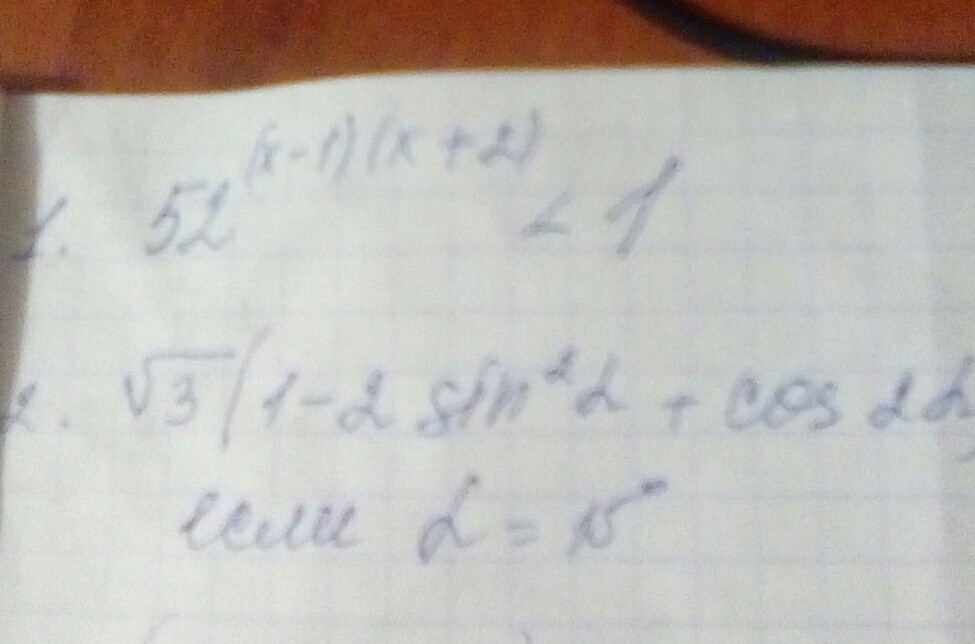 1. 52^(x-1)(x+2) < 1
2. √3(1-2 sin²α + cos 2α
если α = 15°